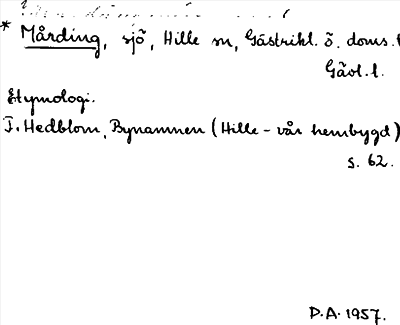 * Mårding, sjö, Hille sn, Gästrikl. ö. doms.
Gävl. l.
Etymologi.
F. Hedblom, Bynamnen (Hille - vår hembygd)
s. 62.
D.A. 1957.